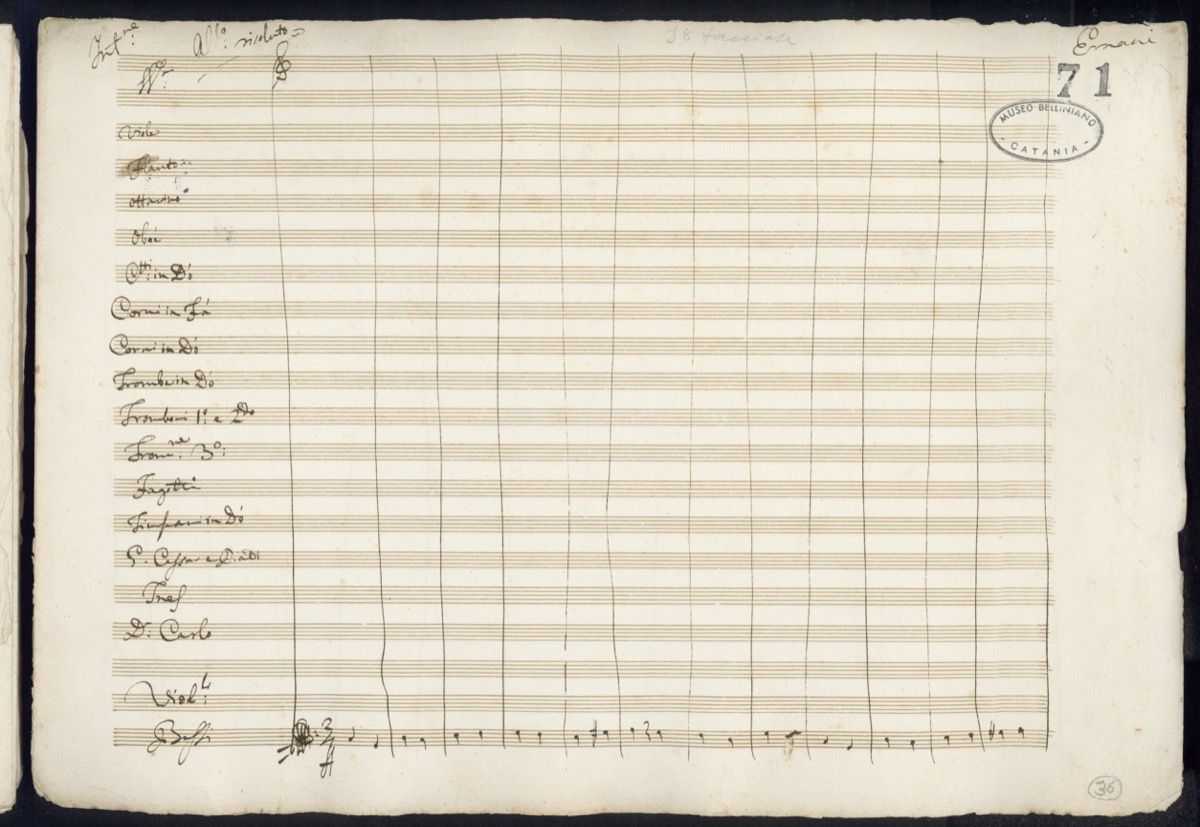 Int.ne All.o risoluto Ernani
71
MUSEO BELLINIANO
- CATANIA -
Viole
Flauto
Ottavino
Oboè
C.tti in Dó
Corni in Fá
Corni in Dó
Trombe in Dó
Tromboni 1.o e 2.do
Trom.ne 3.o:
Fagotti
Timpani in Dó
G. Cassa e Piatti
D. Carlo
Viol.l:
Bassi
36